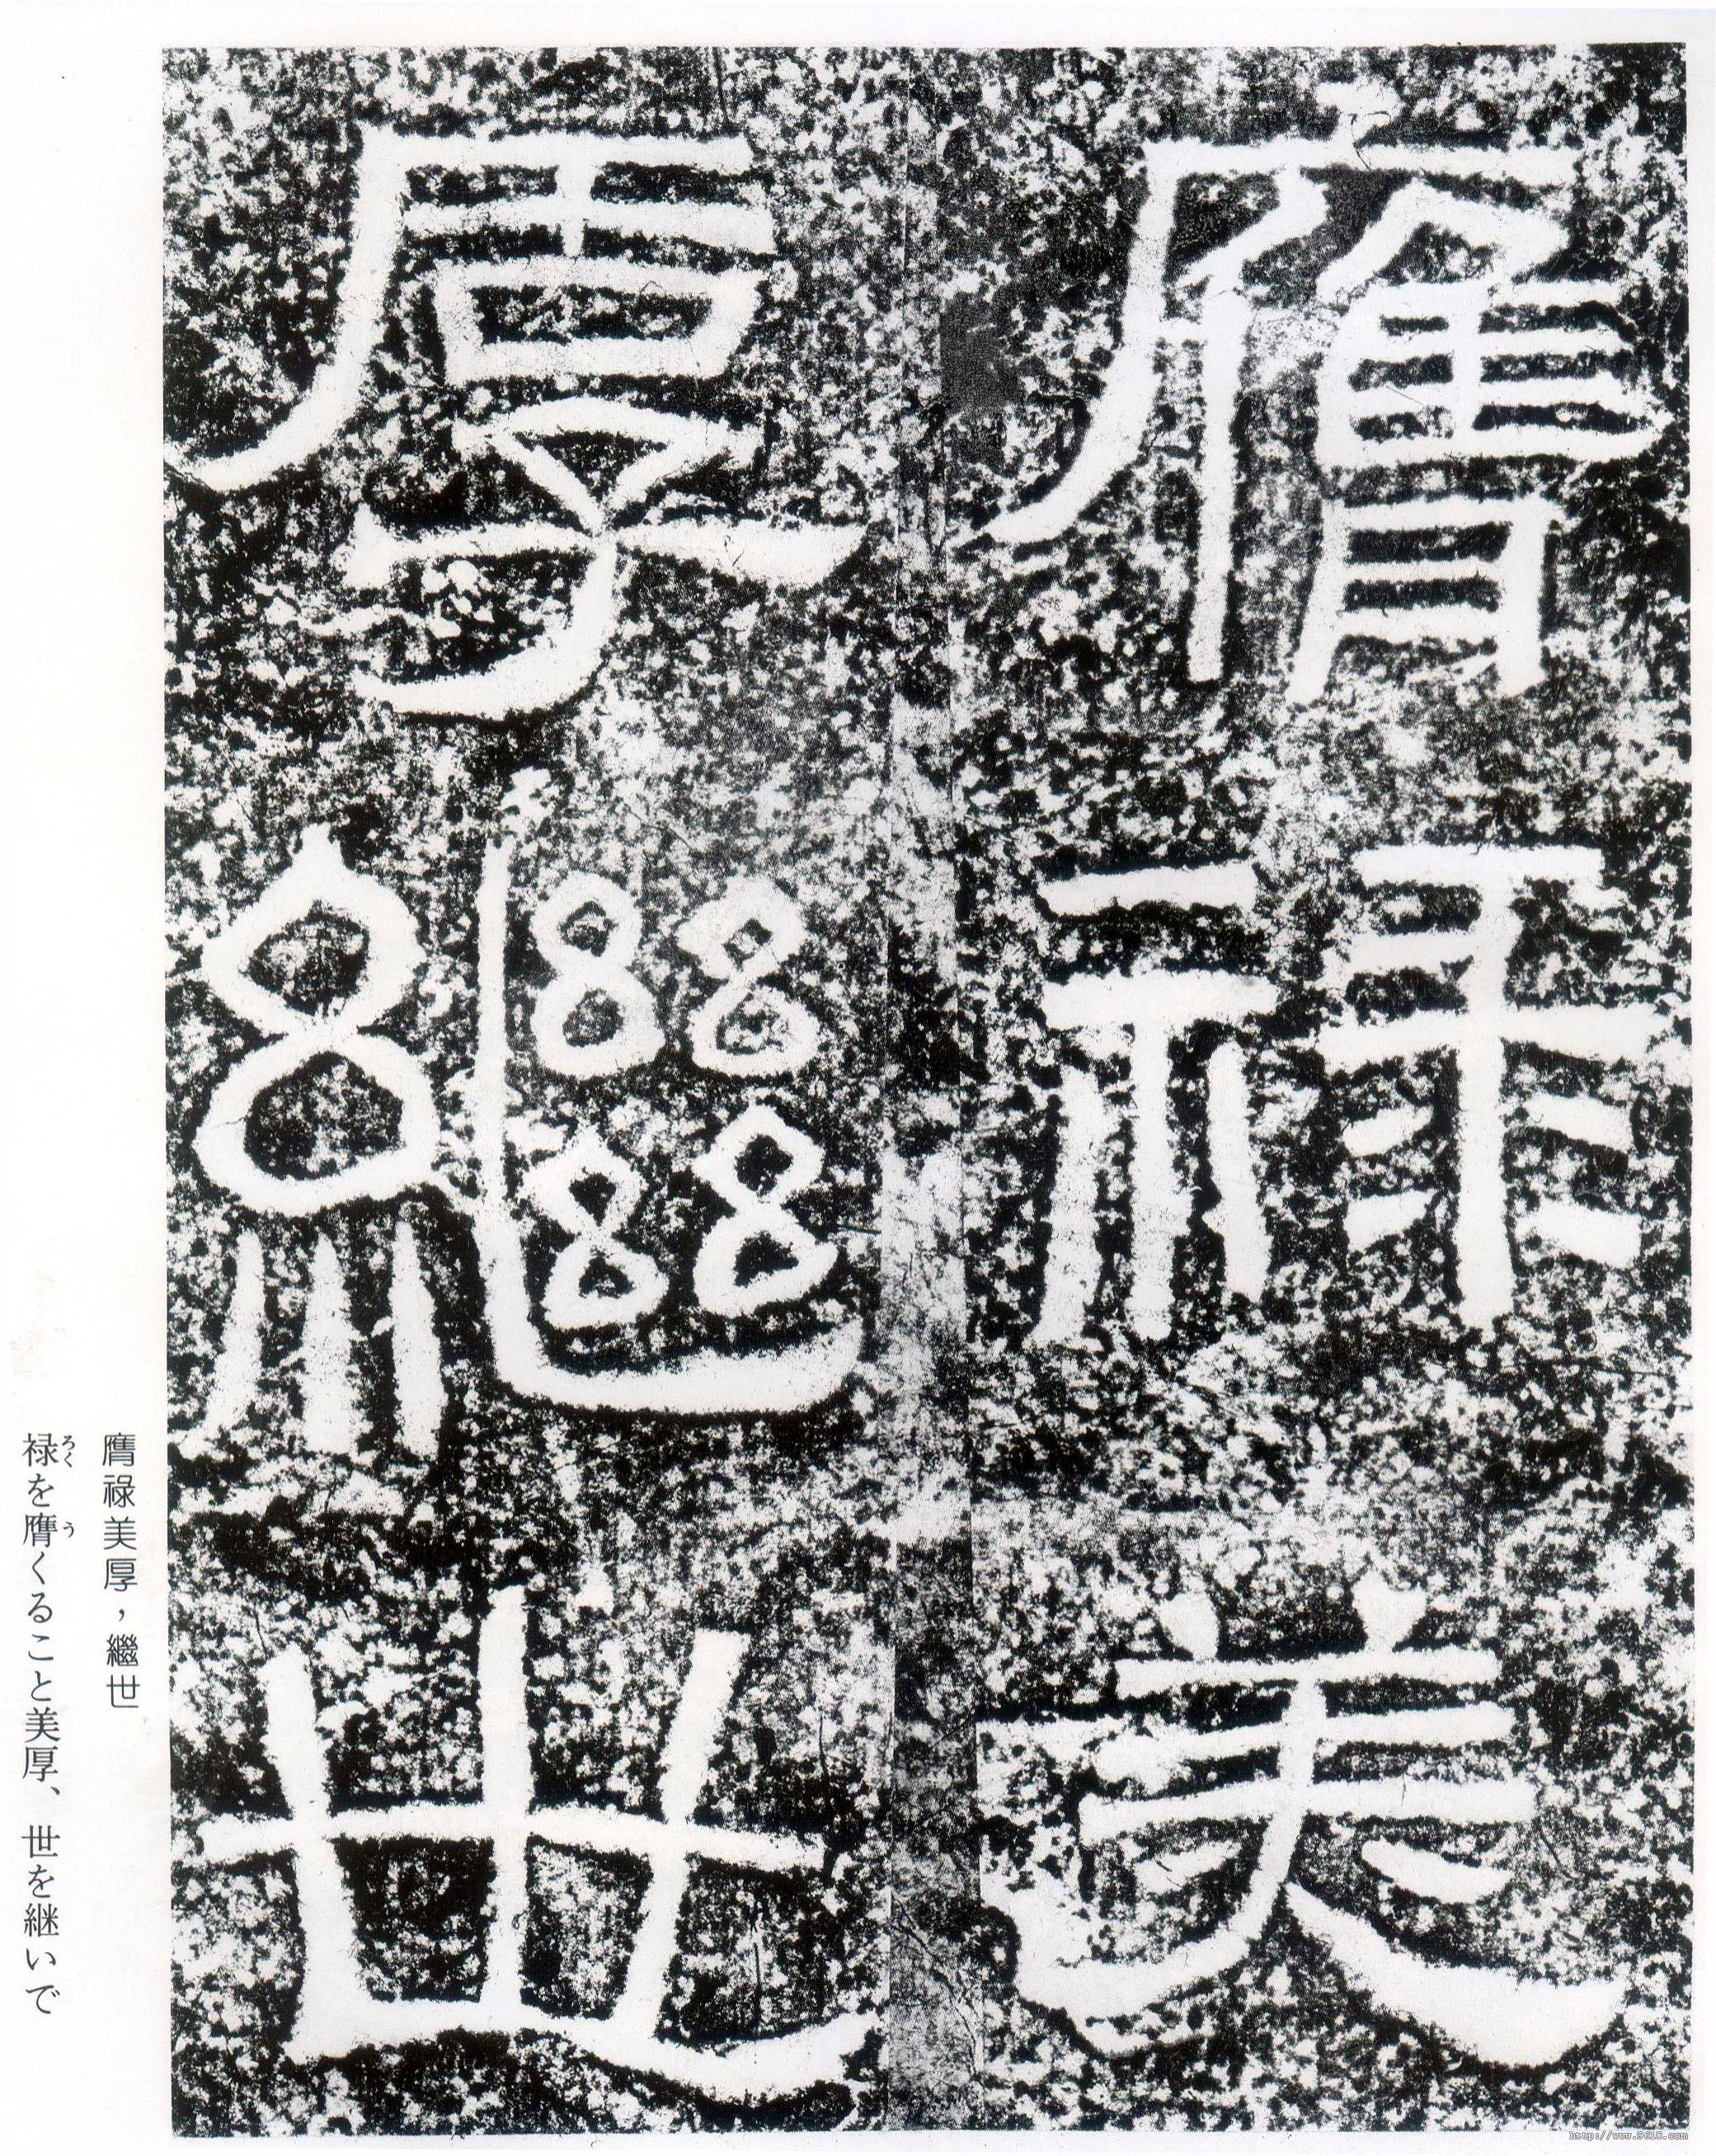 膺祿美
厚繼世
膺祿美厚，繼世
禄を膺くること美厚、世を継いで
ろく
う
http://www.9610.com